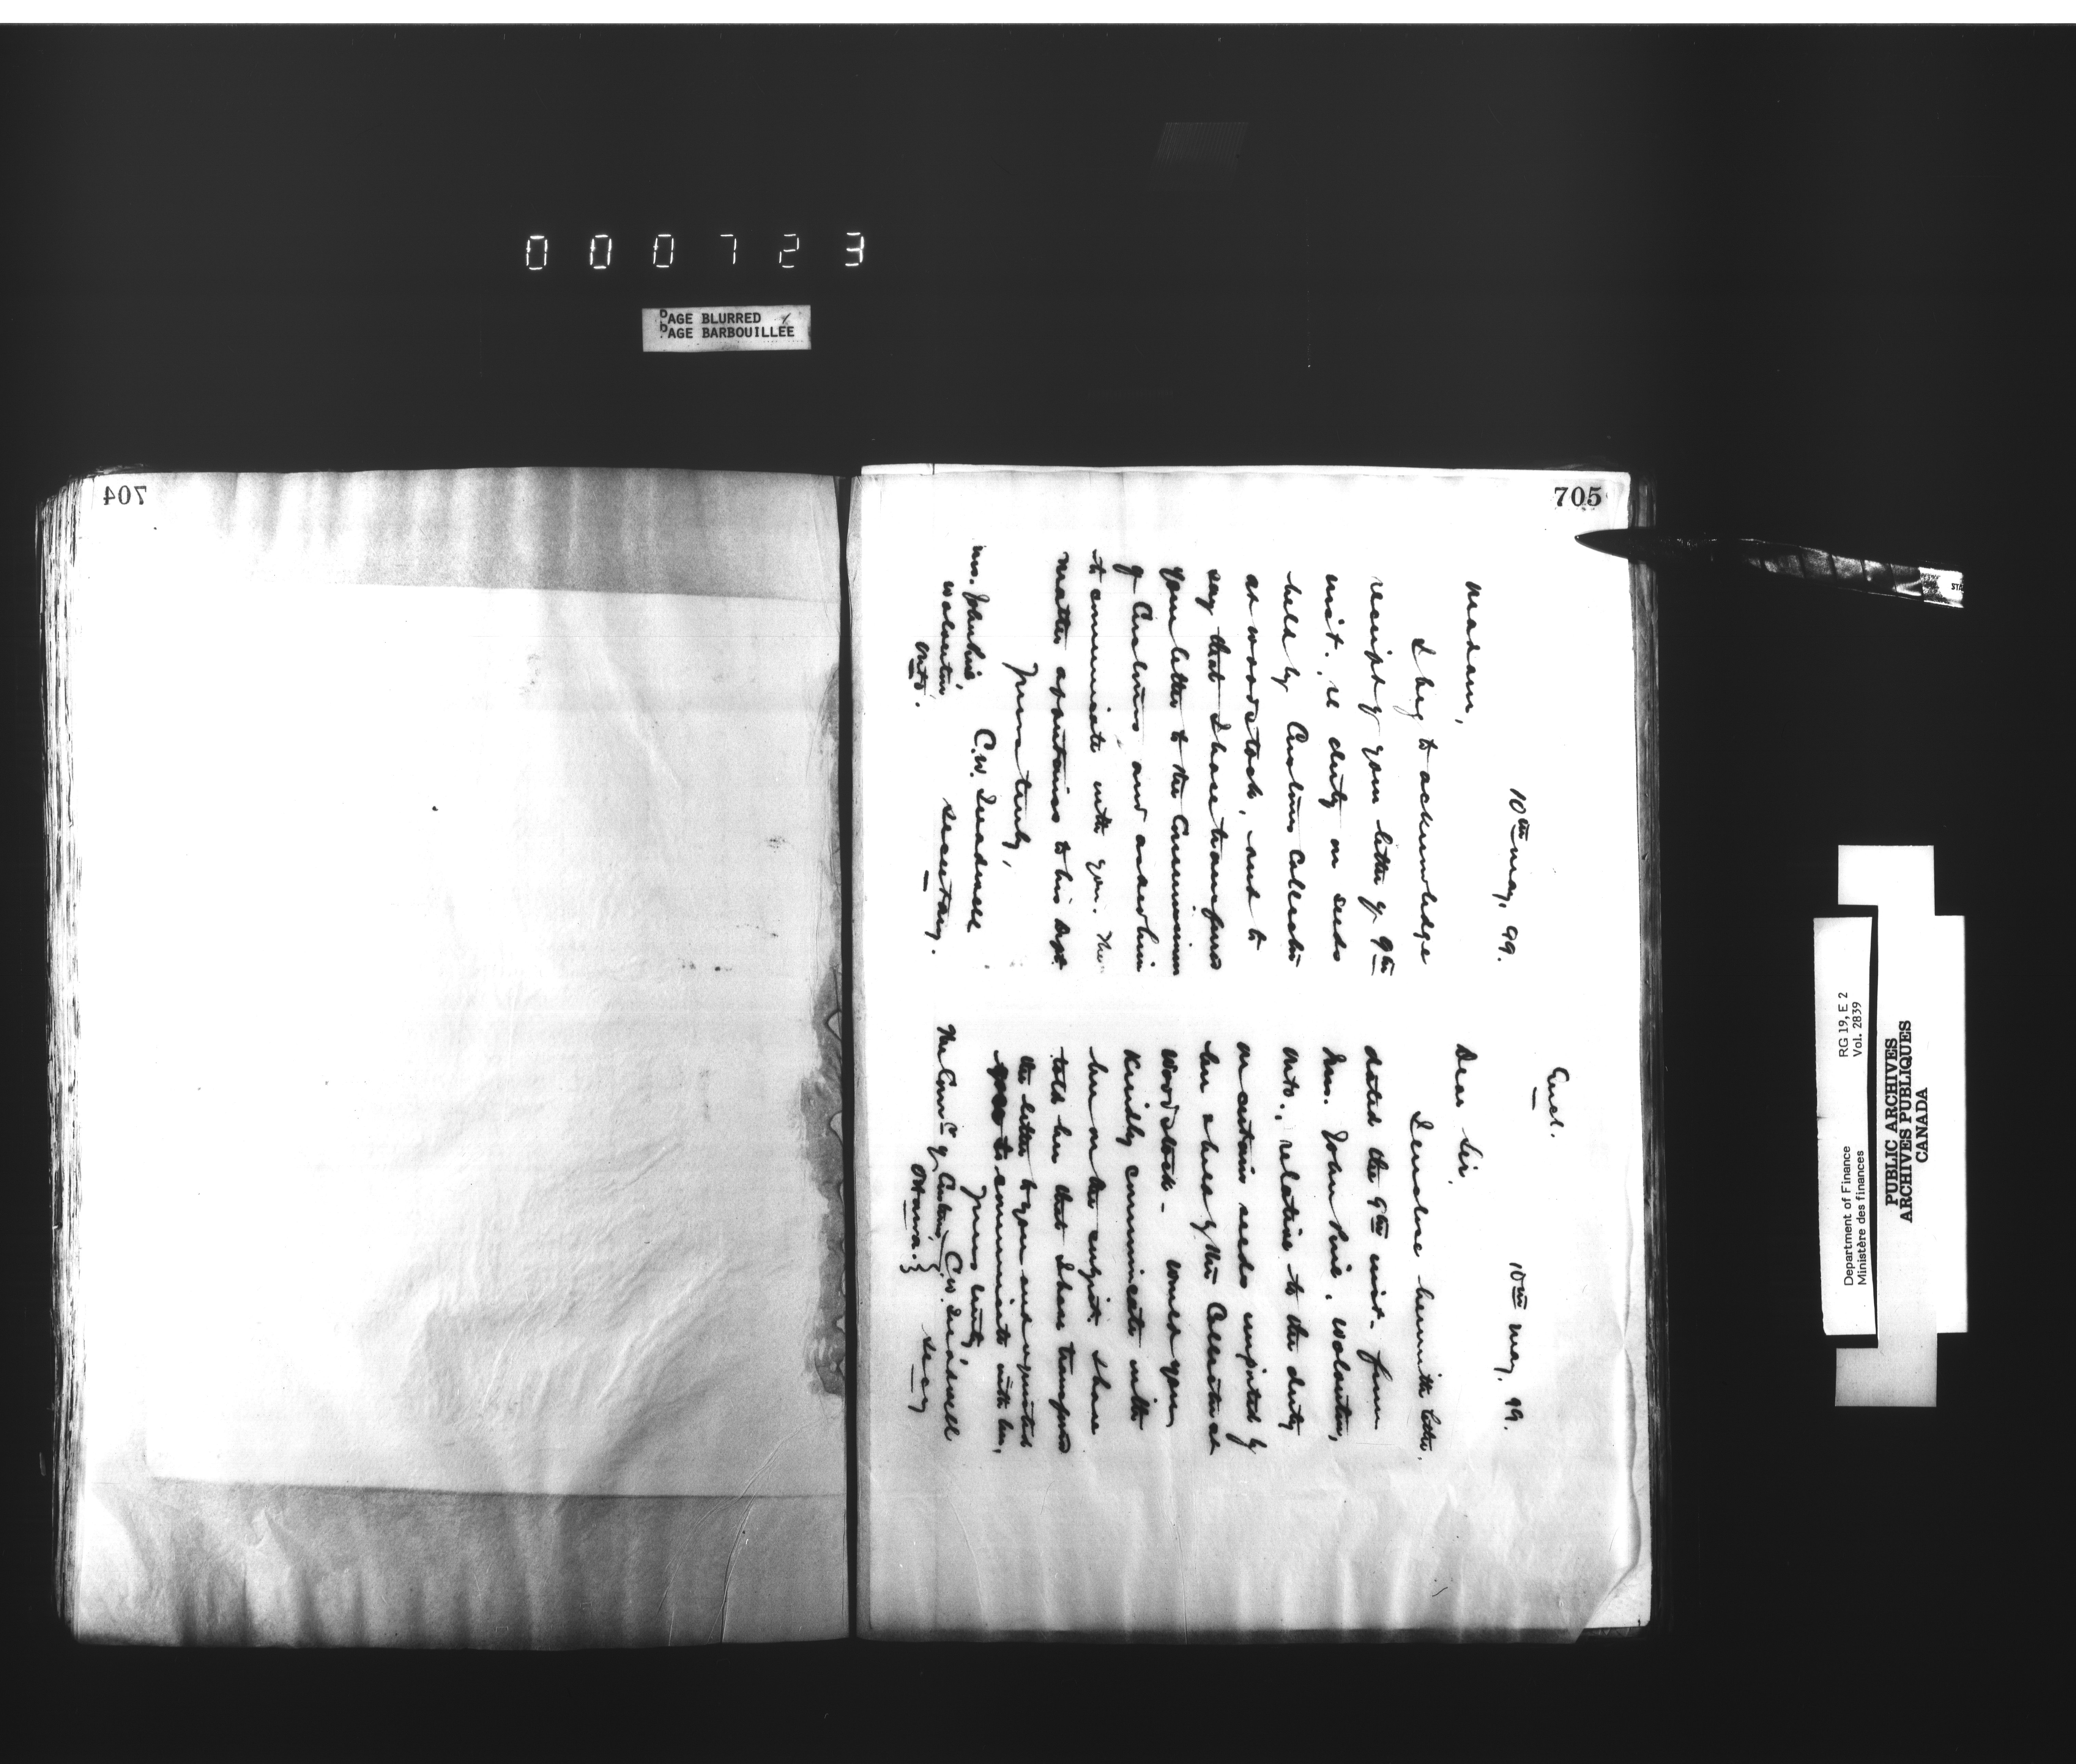 000723
PAGE BLURRED
PAGE BARBOUILLEE
704
705
10th May, 99.
Madam,
I beg to acknowledge
receipt of your letter of 9th
inst., re duty on seeds
held by Customs Collector
at Woodstock, and to
say that I have transferred
your letter to the Commissioner
of Customs and asked him
to communicate with you. The
matter appertains to his Dept.
Yours truly,
C.W. Treadwell
Secretary.
Mrs. John
Wolverton
Onto.
Encl.
10th May, 99.
Dear Sir,
I enclose herewith letter,
dated the 9th inst. from
Mrs. John, Wolverton,
Onto., relative to the duty
on certain seeds imported by
her & held by the Collector at
Woodstock. Would you
Kindly communicate with
her on the subject. I have
told her that I have transferred
the letter to you and requested
you to communicate with her.
Yours truly,
C.W. Treadwell
Secy
The Comr of Customs,
Ottawa.
Department of Finance RG 19, E 2
Ministère des finances Vol. 2839
PUBLIC ARCHIVES
ARCHIVES PUBLIQUES
CANADA